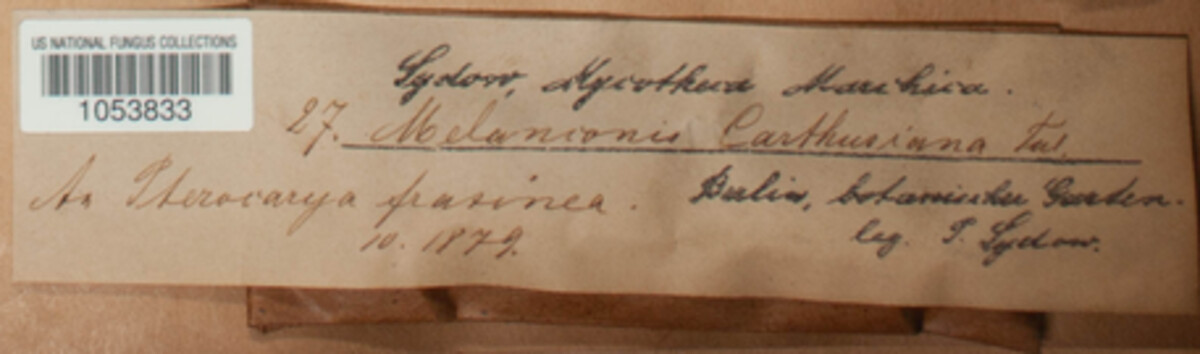 US NATIONAL FUNGUS COLLECTIONS
1053833
Sydow, Mycotheca Marchica.
27. Melanconis Carthusiana Tul.
An Pterocarya fraxinea.
10. 1879.
Berlin, botanischer Garten.
leg. P. Sydow.